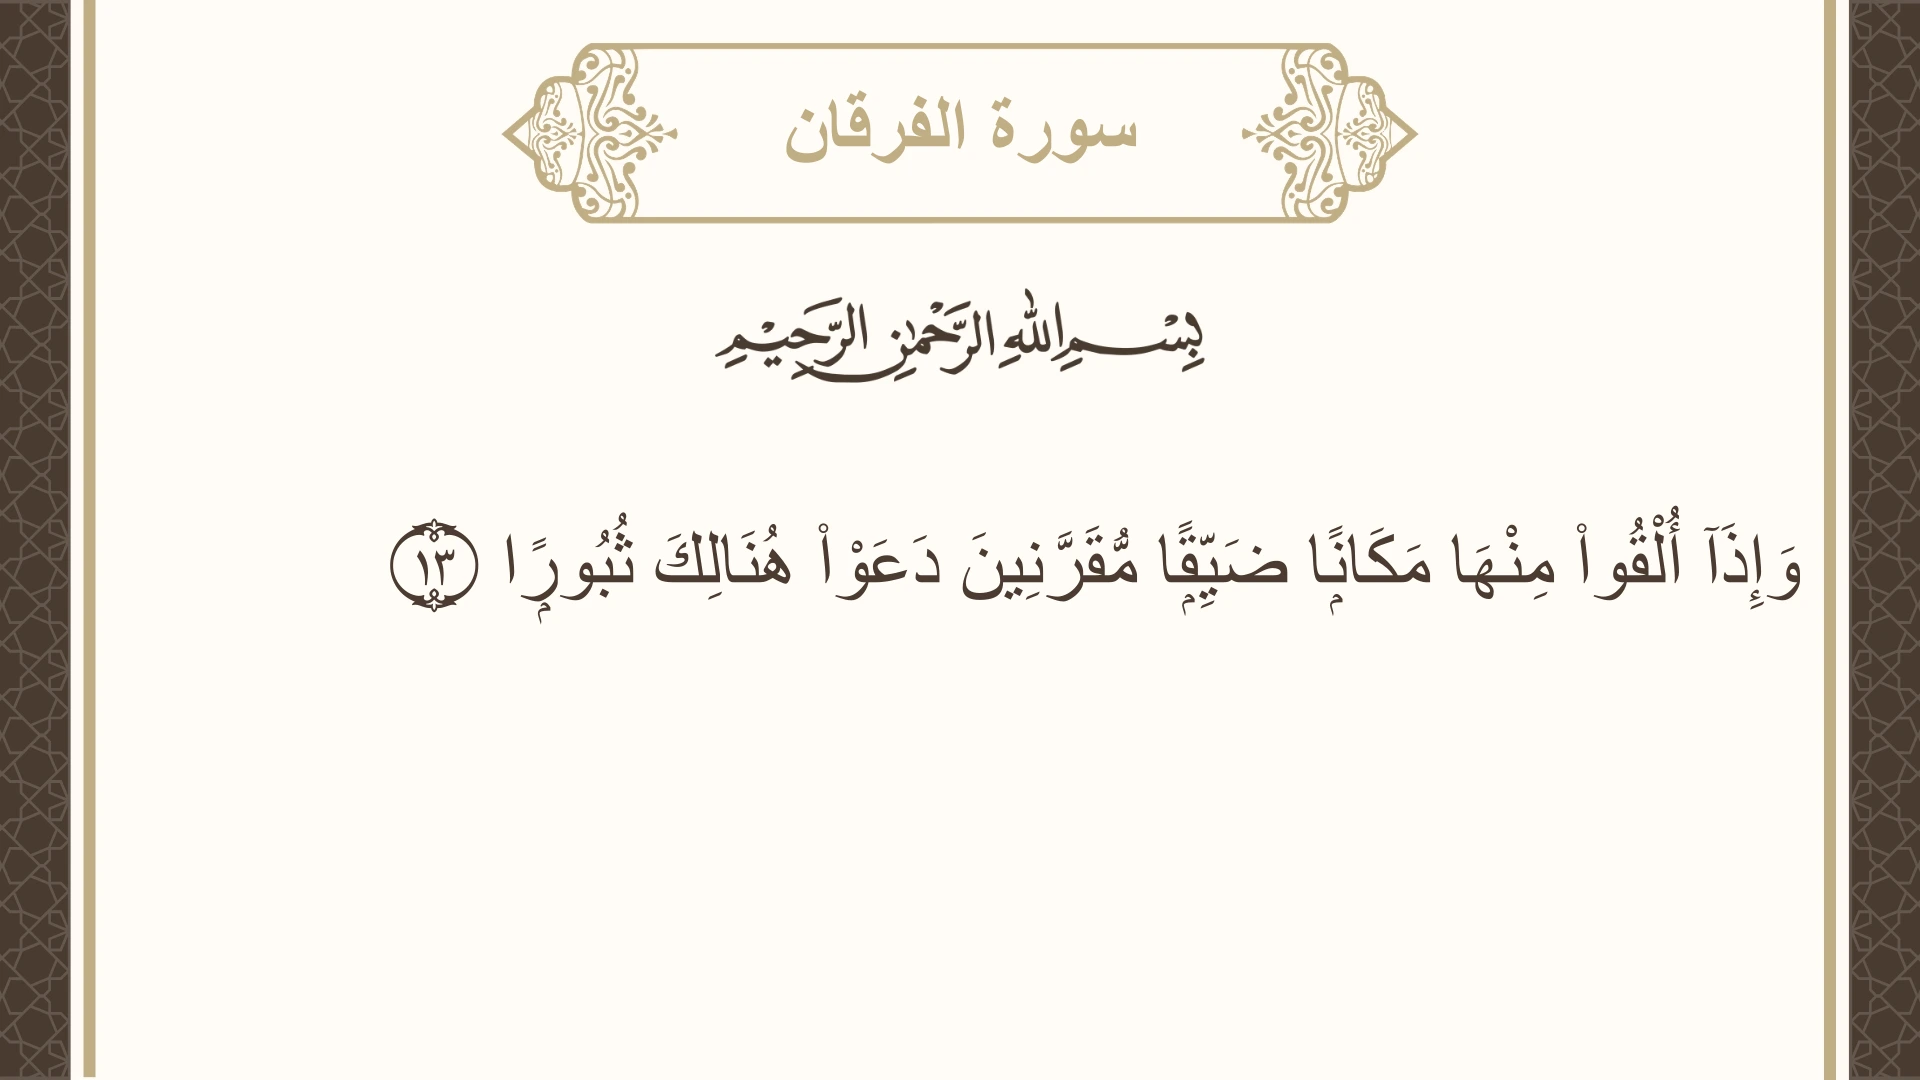 سورة الفرقان
بِسْمِ اللهِ الرَّحْمٰنِ الرَّحِيْمِ
وَإِذَآ أُلْقُوا۟ مِنْهَا مَكَانًۭا ضَيِّقًۭا مُّقَرَّنِينَ دَعَوْا۟ هُنَالِكَ ثُبُورًۭا ١٣